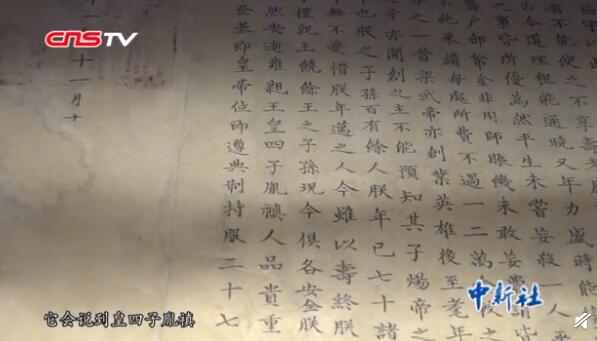 CNSTV
不享壽
古今道理粗能通曉又年力盛時能
事皆所優為然平生未嘗妄殺一人平
戶部帑金非用師賑饑未敢妄費謂皆
不施采繢每處所費不過一二萬金較之
之一昔梁武帝亦創業英雄後至耄年
帝亦開創之主不能預知其子煬帝之
也朕之子孫百有餘人朕年已七十諸
無不愛惜朕年邁之人今雖以壽終朕
子禮親王饒餘王之子孫現今俱各安全朕
然安逝雍親王皇四子胤禛人品貴重
登基即皇帝位即遵典制持服二十七
十一月十
中新社
它会说到皇四子胤禛